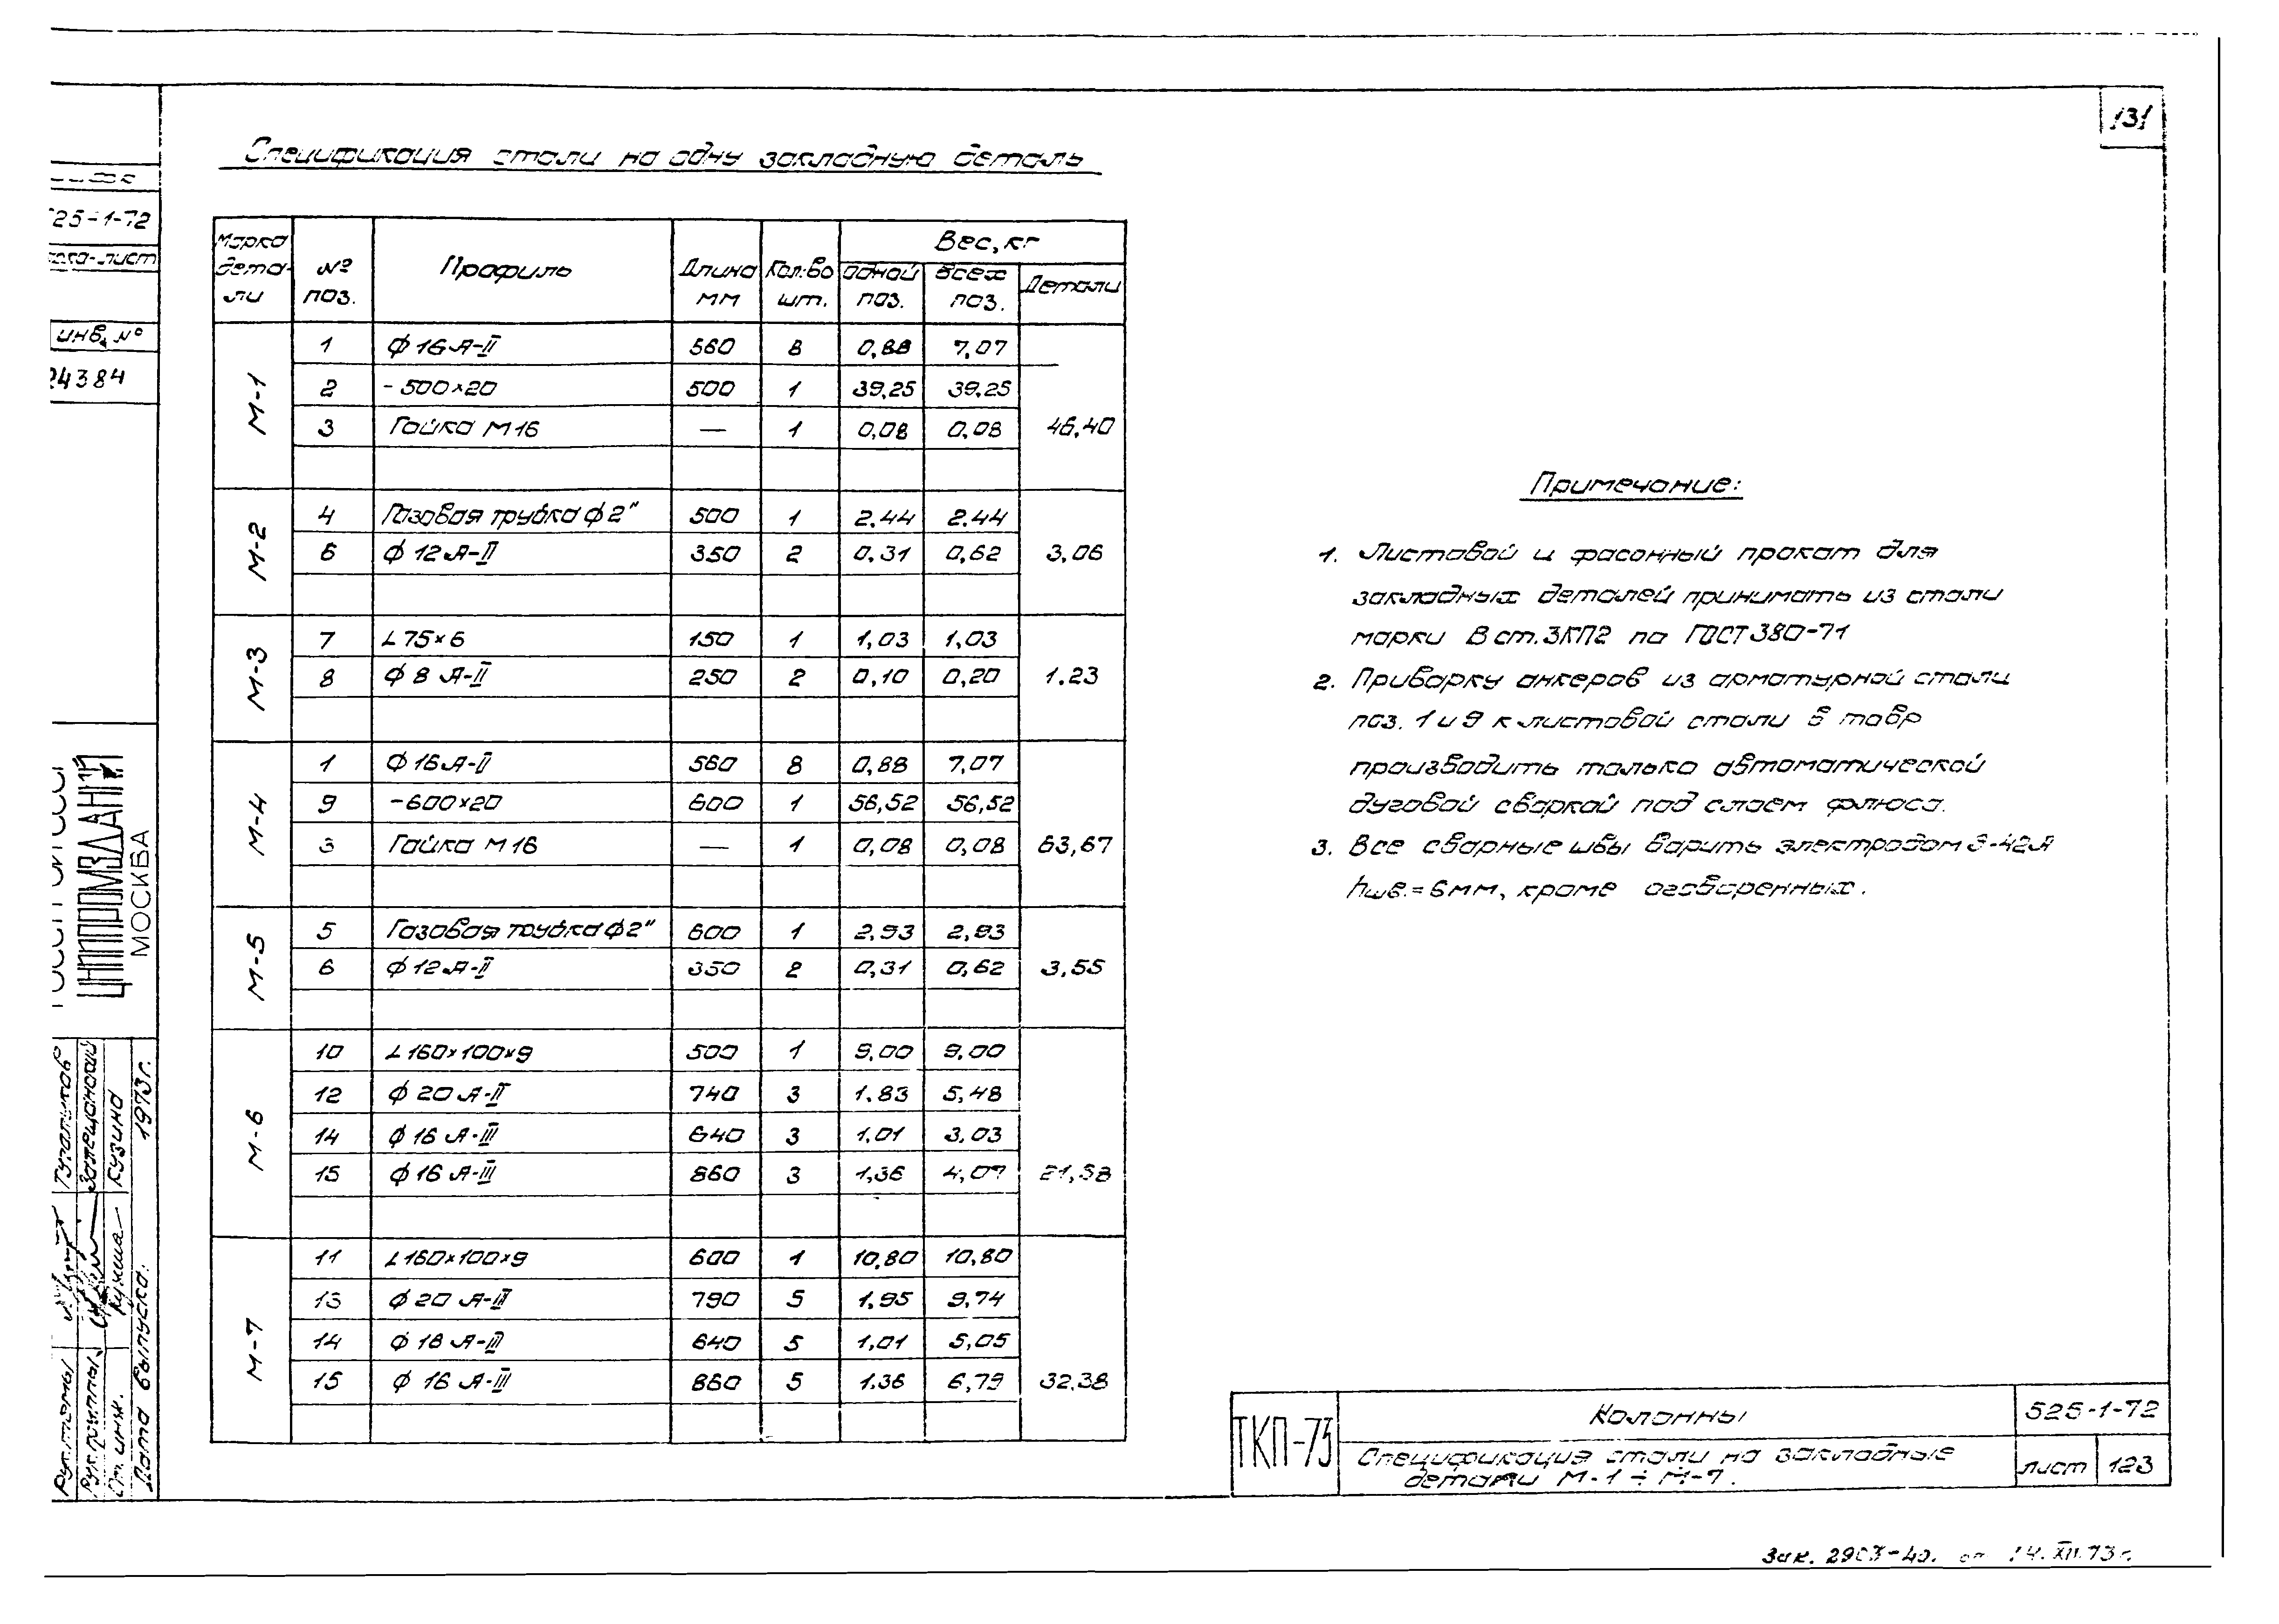 131
Спецификация стали на одну закладную деталь
Марка дета- ли | № поз. | Профиль | Длина мм | Кол-во шт. | Вес, кг
одной поз. | всех поз. | Детали
М-1
1 ф 16 А-II 560 8 0,88 7,07
2 - 500×20 500 1 39,25 39,25
3 Гайка М16 — 1 0,08 0,08 46,40
М-2
4 Газовая трубка ф 2" 500 1 2.44 2.44
6 ф 12 А-II 350 2 0,31 0,62 3,06
М-3
7 L 75×6 150 1 1,03 1,03
8 ф 8 А-II 250 2 0,10 0,20 1.23
М-4
1 ф 16 А-II 560 8 0,88 7,07
9 -600×20 600 1 56,52 56,52
3 Гайка М16 — 1 0,08 0,08 63,67
М-5
5 Газовая трубка ф 2" 600 1 2,93 2,93
6 ф 12 А-II 350 2 0,31 0,62 3,55
М-6
10 L 160×100×9 500 1 9,00 9,00
12 ф 20 А-II 740 3 1.83 5,48
14 ф 16 А-III 640 3 1,01 3,03
15 ф 16 А-III 860 3 1,36 4,07 21,58
М-7
11 L 160×100×9 600 1 10,80 10,80
13 ф 20 А-II 790 5 1,95 9,74
14 ф 16 А-III 640 5 1,01 5,05
15 ф 16 А-III 860 5 1.36 6,79 32.38
Примечание:
1. Листовой и фасонный прокат для
закладных деталей принимать из стали
марки В ст.3КП2 по ГОСТ 380-71
2. Приварку анкеров из арматурной стали
поз. 1 и 9 к листовой стали в тавр
производить только автоматической
дуговой сваркой под слоем флюса.
3. Все сварные швы варить электродом Э-42А
hшв.= 6мм, кроме оговоренных.
ТКП-73
Колонны
525-1-72
Спецификация стали на закладные
детали М-1 ÷ М-7.
лист 123
Зак. 2903-40. от 14.XII.73 г.
25-1-72
инв. №
24384
ЦНИИПРОМЗДАНИЙ
МОСКВА
Рук. темы
Рук. группы
Ст. инж. Кузина
Дата выпуска. 1973г.